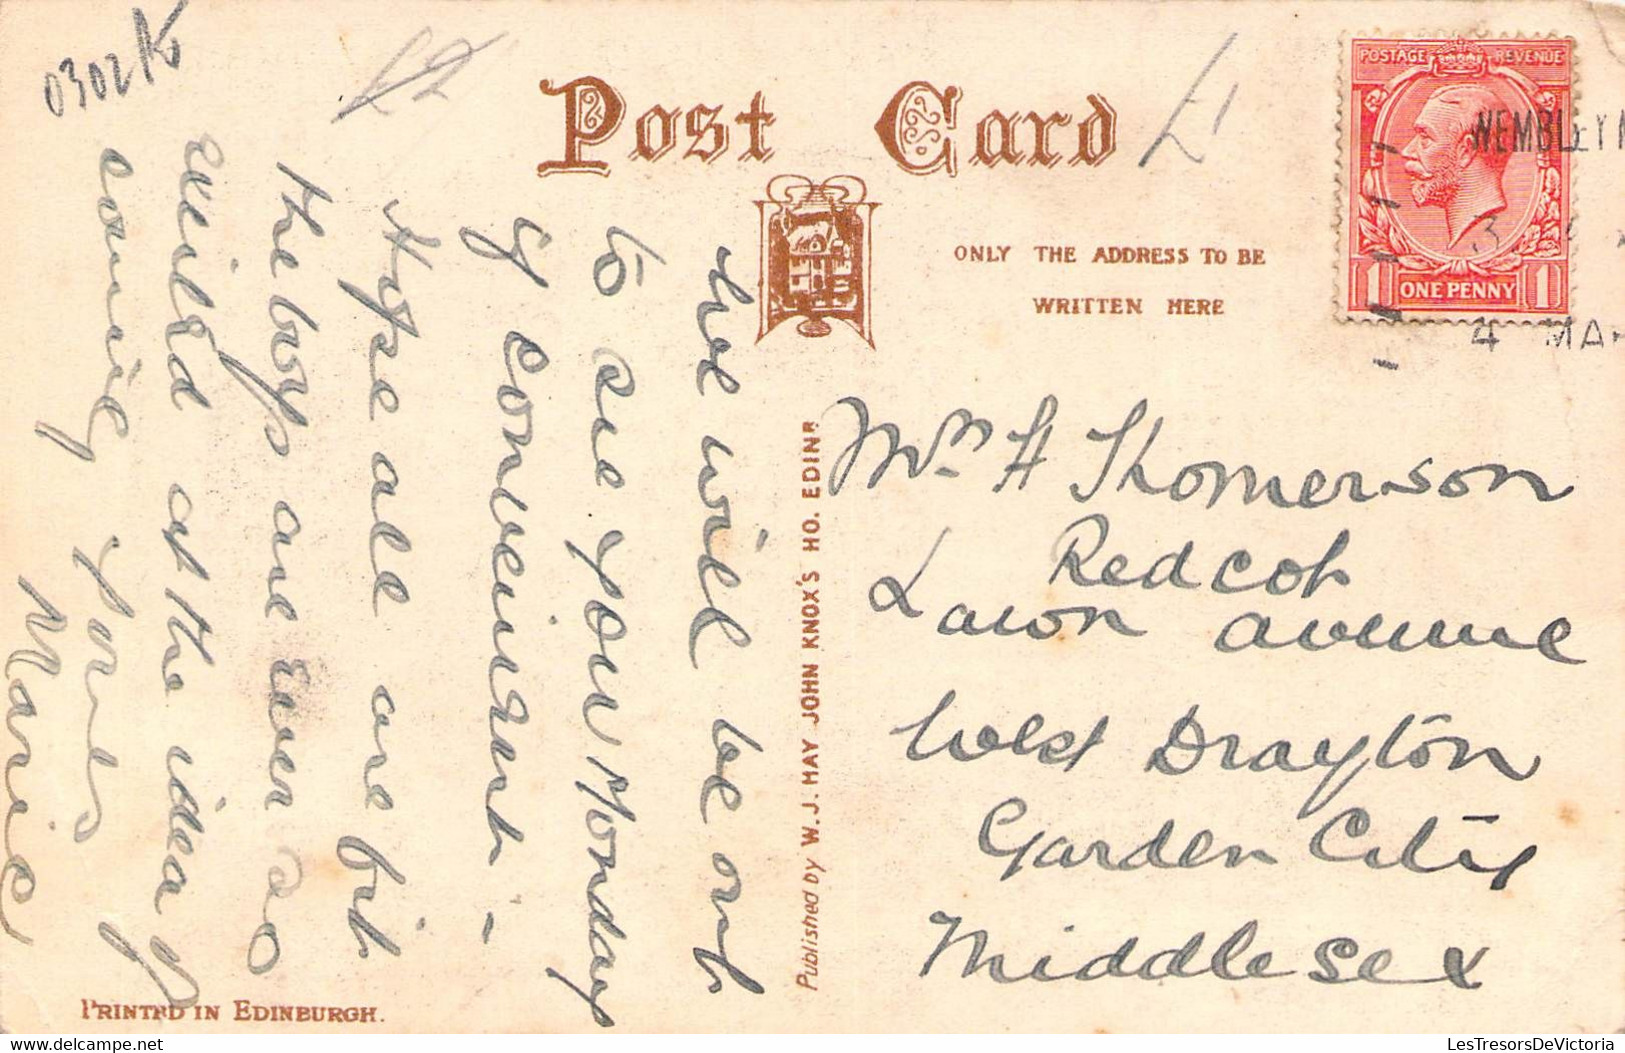 0302K
£2
Post Card
£1
POSTAGE REVENUE
1 ONE PENNY 1
WEMBLEY
3
4 MA
ONLY THE ADDRESS TO BE
WRITTEN HERE
we will be out
to see you Monday
if convenient –
Hope all are fit
the boys are ever so
coming yours
Marie
Published by W. J. HAY JOHN KNOX'S HO. EDINR
Mrs H Thomerson
Redcot
Lawn Avenue
West Drayton
Garden City
Middlesex
PRINTED IN EDINBURGH.
excited at the idea of
Delcampe.net
LesTresorsDeVictoria